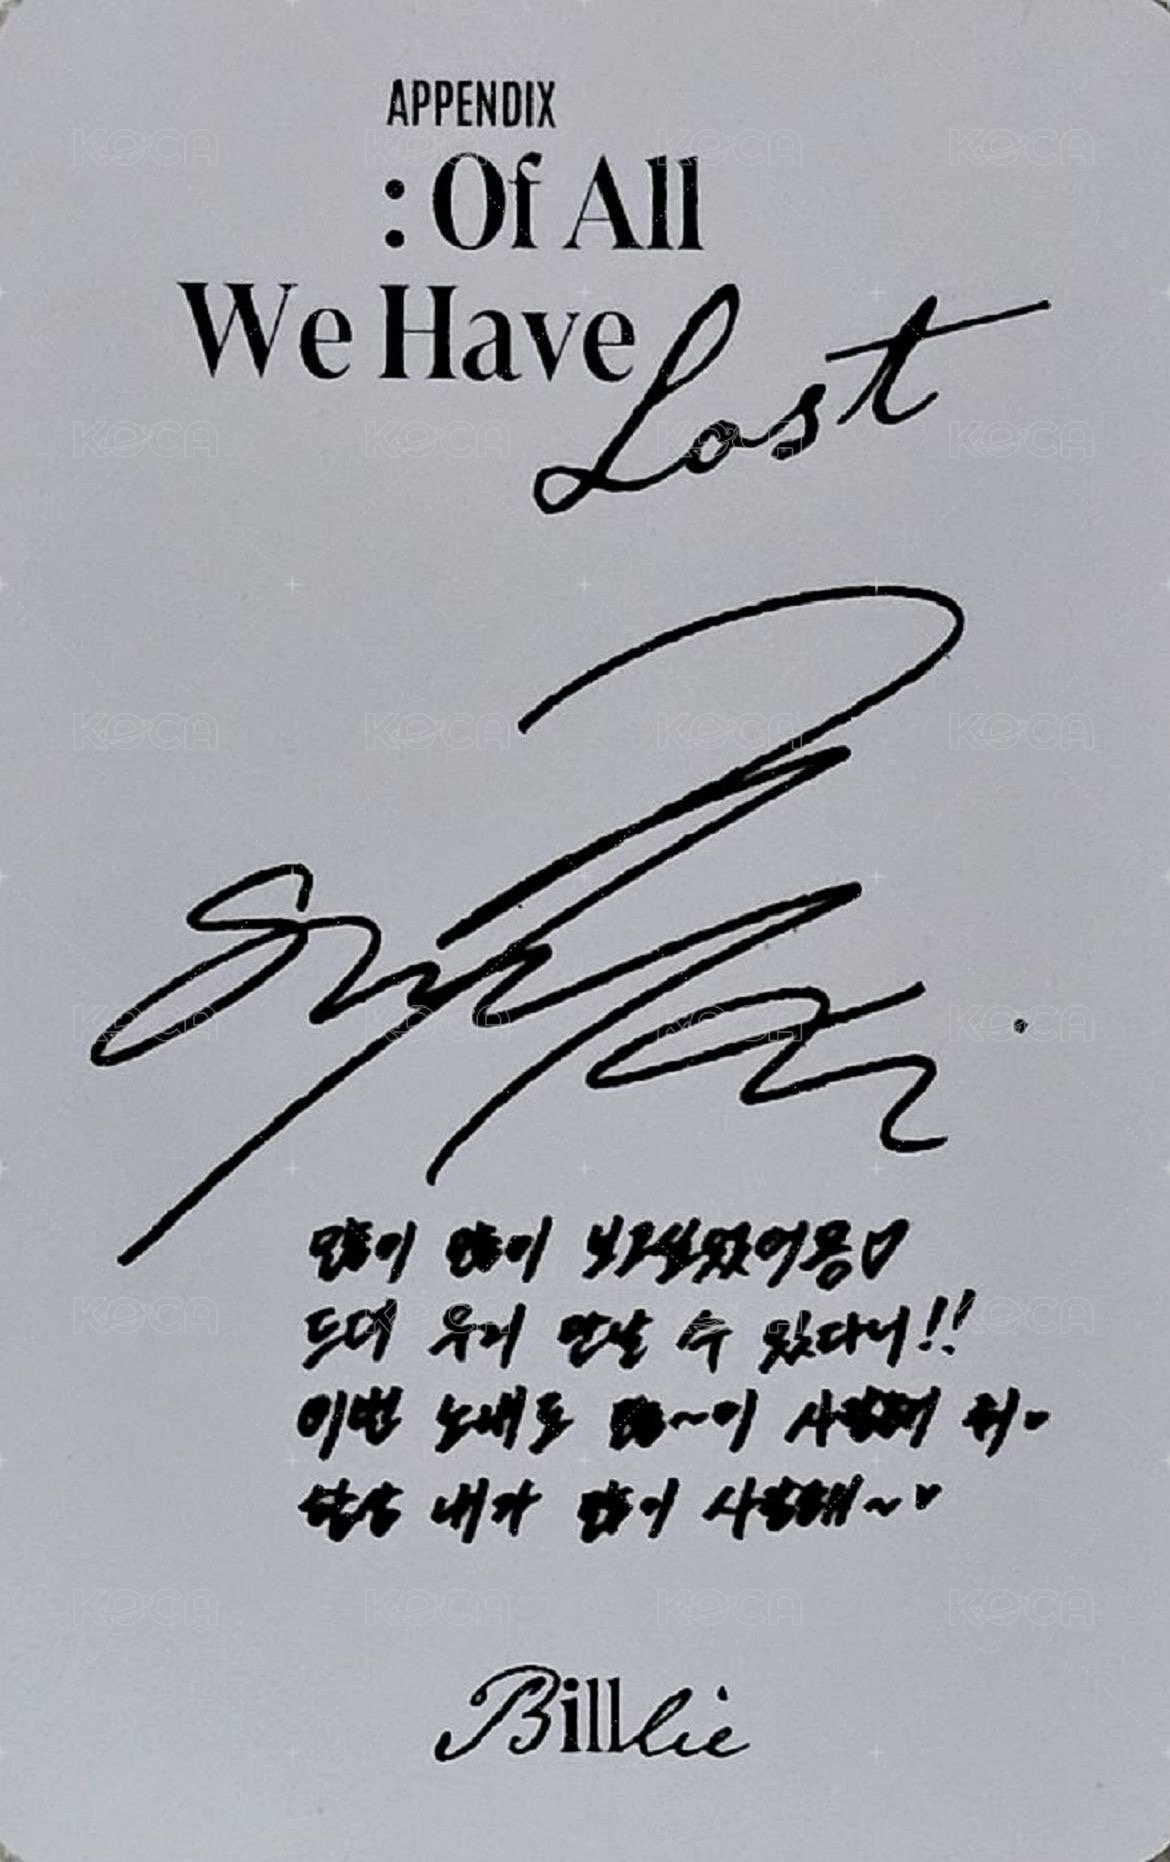 APPENDIX
: Of All
We Have
Lost
많이 많이 보고싶었어용♡
드뎌 우리 만날 수 있다니!!
이번 노래도 많~이 사랑해 줘♥
난 내가 많이 사랑해~♥
Billlie
KOCA